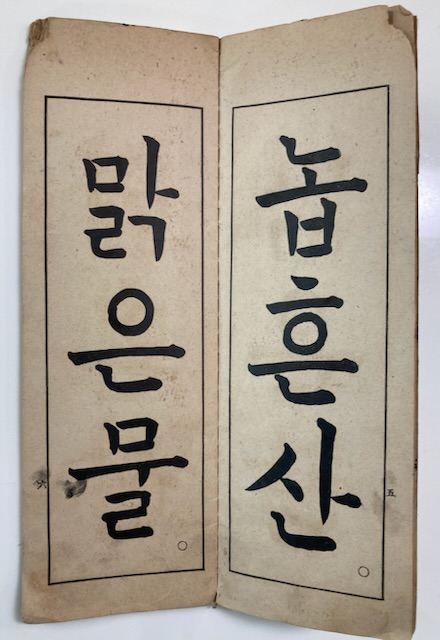 놉흔산
五
맑은물
六